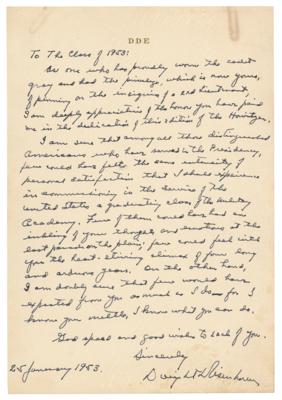 DDE
To The Class of 1953:
As one who has proudly worn the cadet
gray and had the privilege, which is now yours,
of pinning on the insignia of a 2nd Lieutenant,
I am deeply appreciative of the honor you have paid
me in the dedication of this edition of the Howitzer.
I am sure that among all those distinguished
Americans who have served in the Presidency,
few could have felt the same intensity of
personal satisfaction that I shall experience
in commissioning in the service of the
United States a graduating class of the Military
Academy. Few of them could have had an
inkling of your thoughts and emotions at the
last parade on the plain; few could feel with
you the heart-stirring climax of four long
and arduous years. On the other hand,
I am doubly sure that few would have
expected from you as much as I do—for I
know your mettle, I know what you can do.
God speed and good wishes to each of you.
Sincerely
Dwight D Eisenhower
25 January 1953.